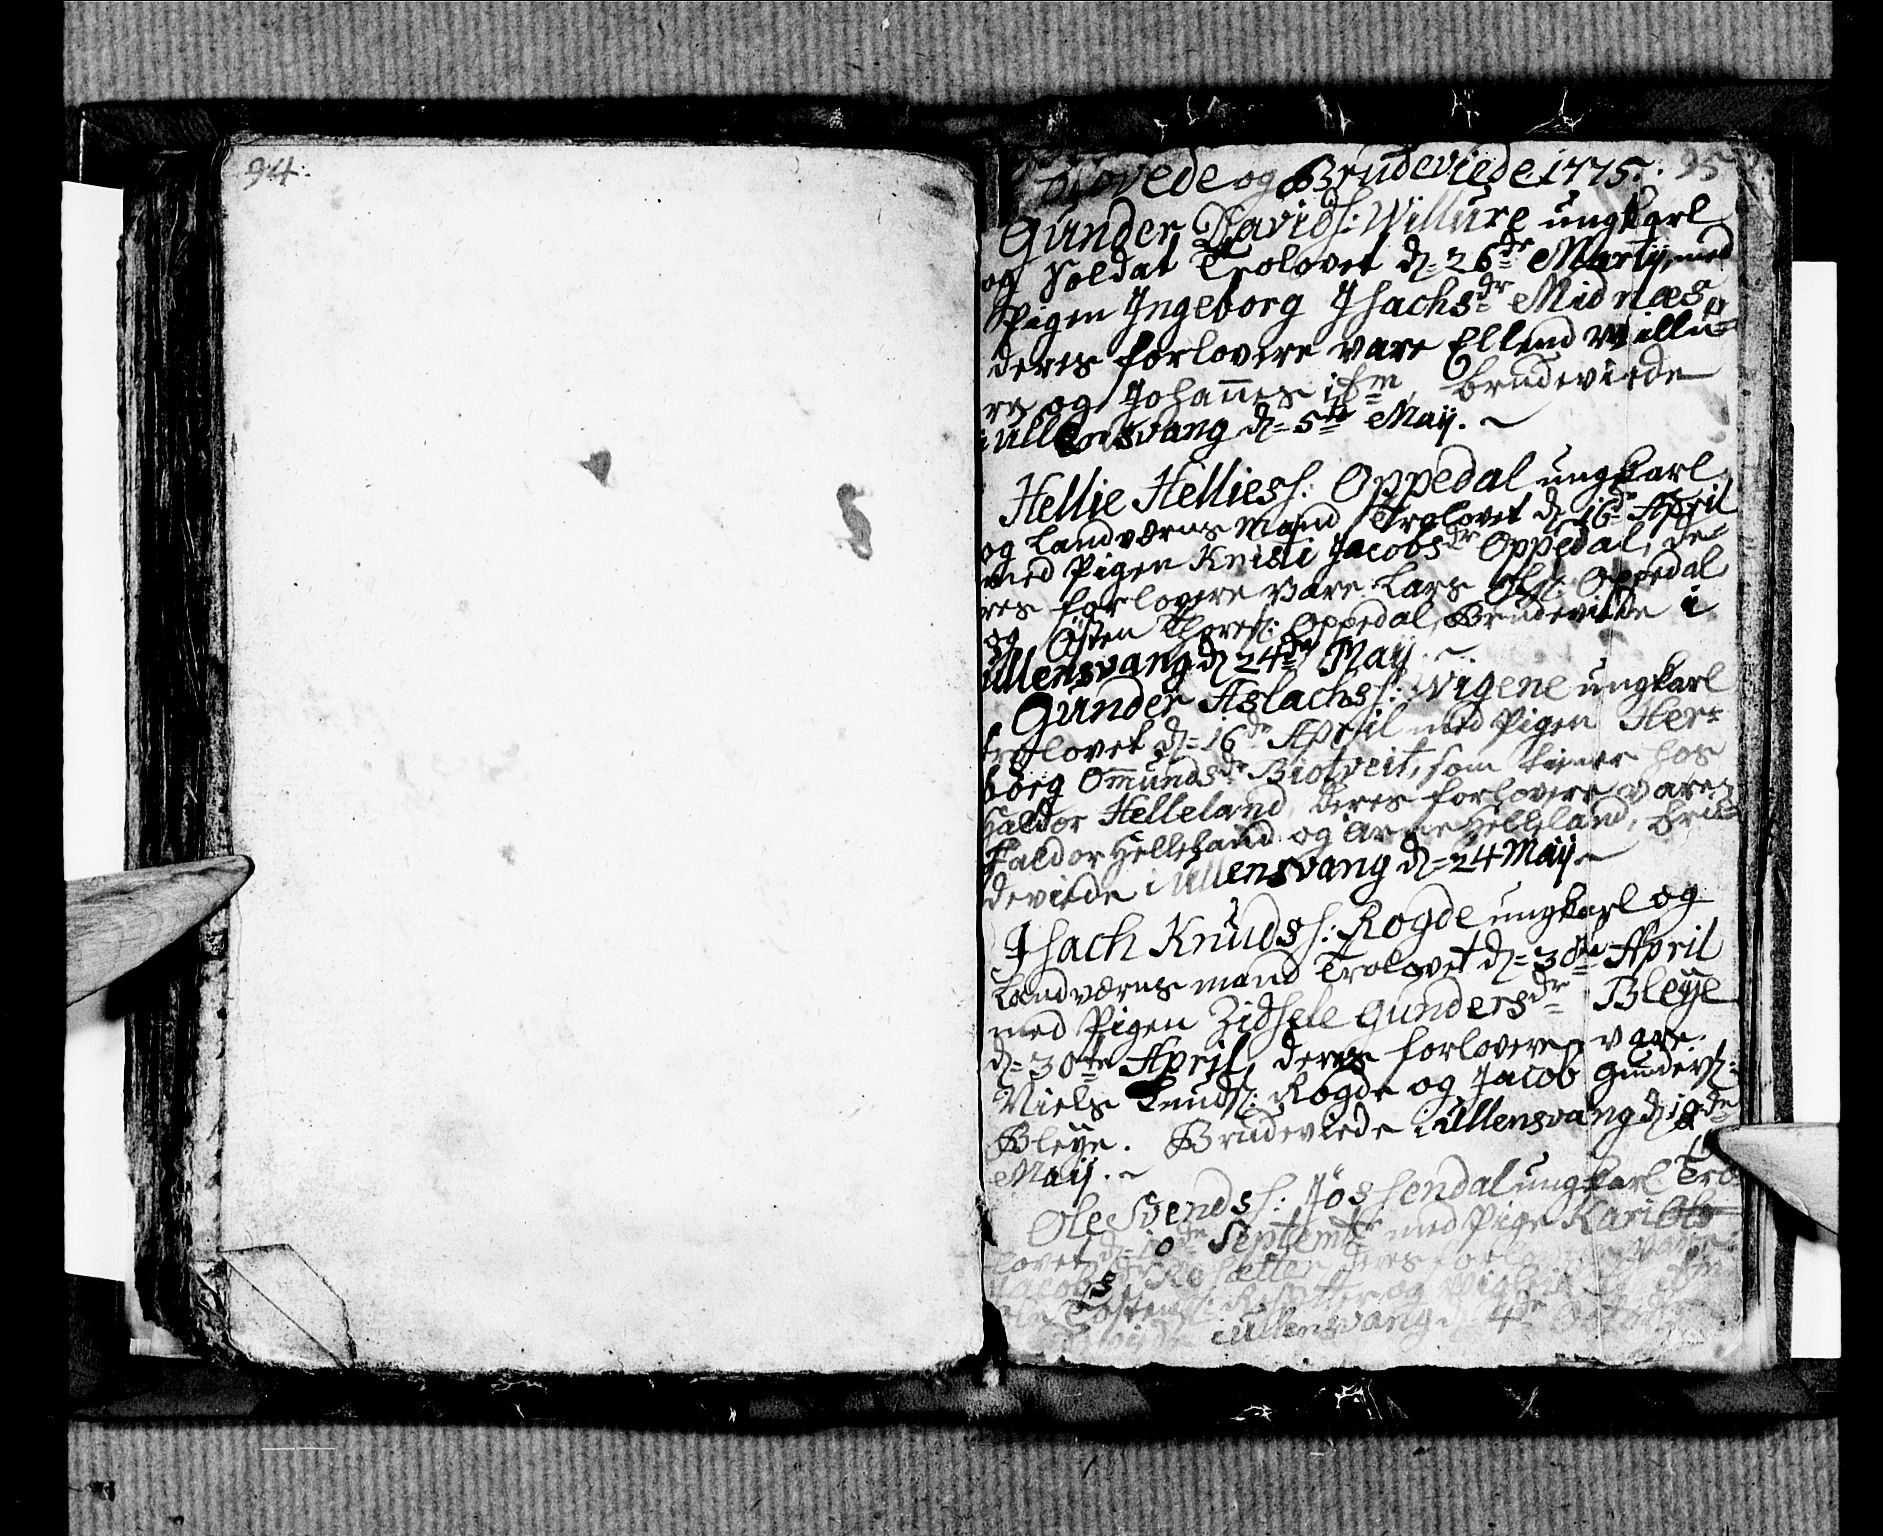 94.
Trolovede og Brudeviede 1775. 95
Gunder Davids: Willure ungkarl
og Soldat Trolovet d= 26de Martij, med
Pigen Ingeborg Isachsdr Midnæs,
deres forlovere vare Ellend Willu=
re og Johannes ibm, brudeviede
i Ullensvang d= 5te Maij. ~
Hellie Hellies: Oppedal ungkarl
og Landværns Mand Trolovet d 16de April
med Pigen Kristi Jacobsdr Oppedal, de=
res forlovere vare Lars Oppedal
og Østen Thores: Oppedal, Brudeviede i
Ullensvang d 24de Maij. ~
Gunder Aslachs: Wigene ungkarl
trolovet d= 16de April med Pigen Her=
borg Omundsdr Biotveit, som tiener hos
Haldor Helleland, deres forlovere vare
Haldor Helleland og Arne Helleland, bru=
deviede i Ullensvang d= 24 Maij ~
Isach Knuds: Rogde ungkarl og
Landværns mand Trolovet d= 30te April
med Pigen Zidsele Gundersdr Bleÿe
d= 30te April, deres forlovere vare
Niels Knuds: Rogde og Jacob Gunders:
Bleÿe. Brudeviede i Ullensvang d 19de
Maij. ~
Ole Svends: Jøssendal ungkarl Tro
lovet d= 10de Septembr med Pige Kari Ols
Jacobsdr Rosætter, deres forlovere vare
Tostens: og
i Ullensvang d= 4de Octobr